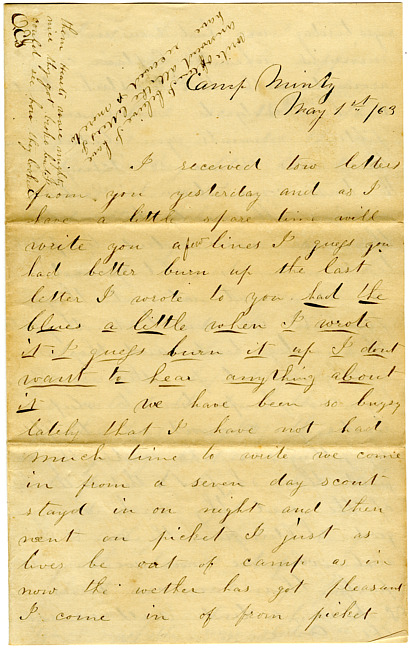 Camp Minty
May 1st /63
I received tow letters
from you yesterday and as I
have a little spare time will
write you a few lines I guess you
had better burn up the last
letter I wrote to you had the
blues a little when I wrote
it I guess burn it up I dont
want to hear anything about
it we have been so buysy
lately that I have not had
much time to write we come
in from a seven day scout
stayd in on night and then
went on picket I just as
lives be out of camp as in
now the wether has got pleasant
I come in of from picket
write often I believe I have
answerd all the letters I have
received